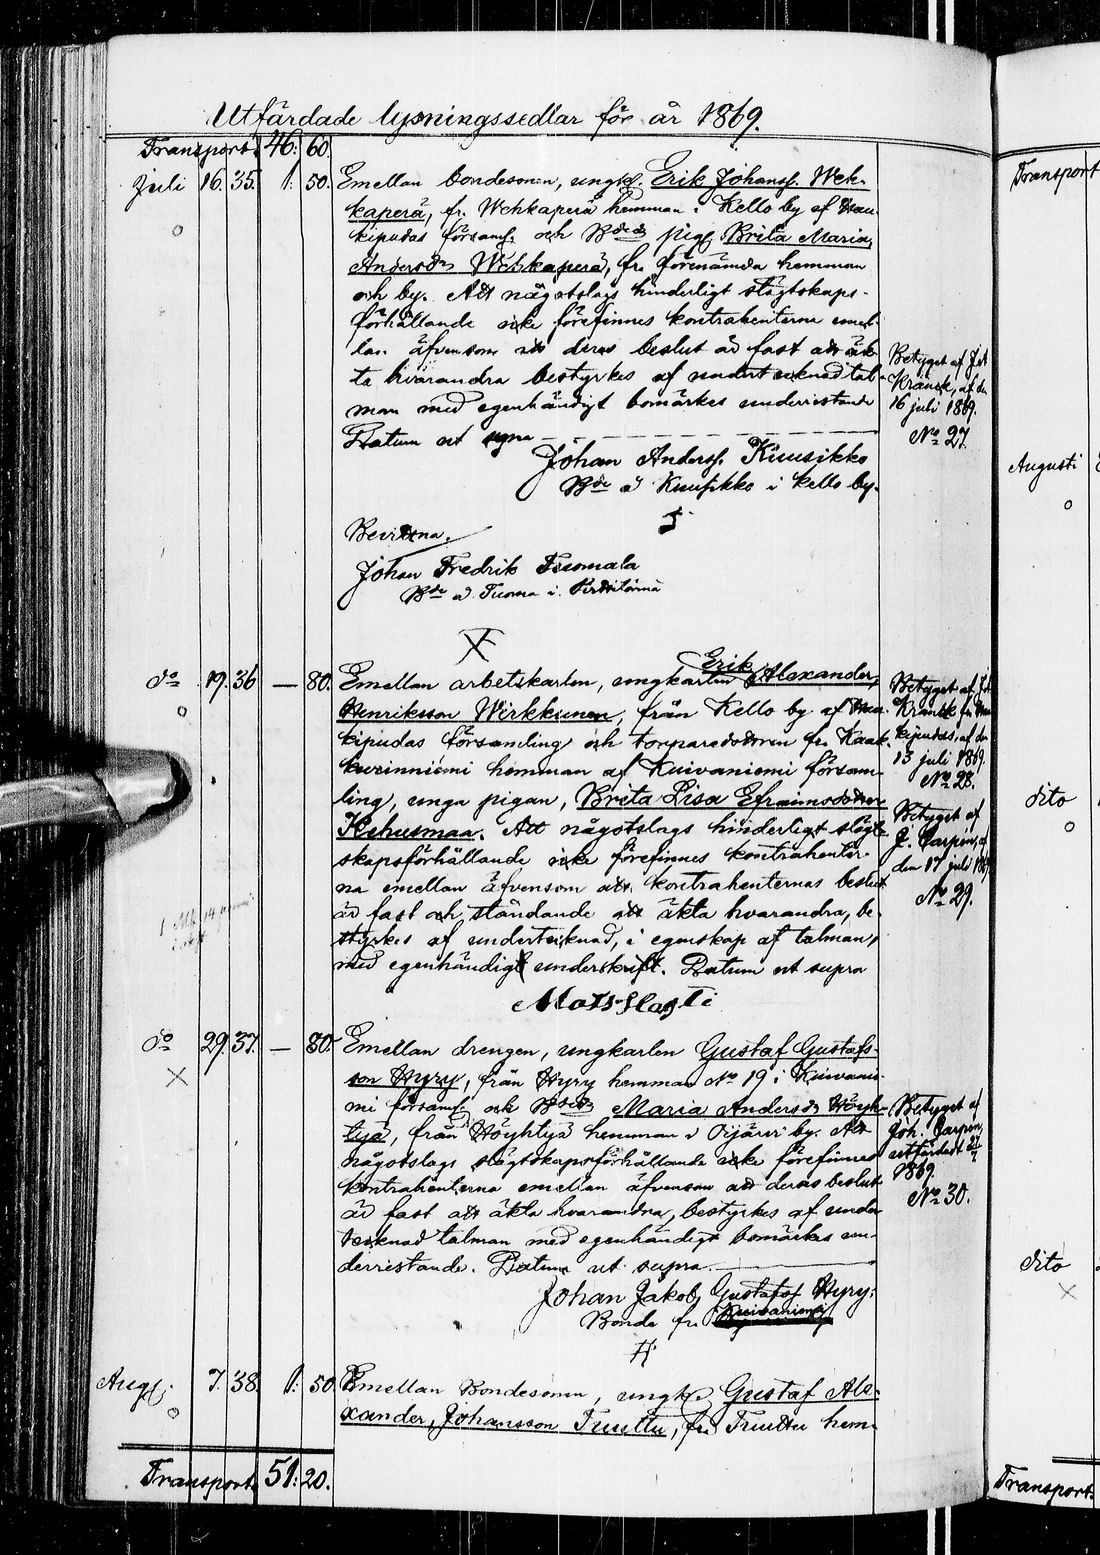 Utfärdade lysningssedlar för år 1869.
Transport. 46. 60.
Juli 16. 35. 1. 50. Emellan bondesonen, ungk. Erik Johanss. Weh-
kaperä, fr. Wehkaperä hemman i Kello by af Hau-
kipudas församl. och Bded. pig. Brita Maria
Andersdr Wehkaperä, frn förenämda hemman
och by. Att någotslags hinderligt slägtskaps-
förhållande icke förefinnes kontrahenterna emel-
lan äfvensom att deras beslut är fast att äk-
ta hvarandra bestyrkes af undertecknad tal-
man med egenhändigt bomärkes underristande
Datum ut supra
Johan Anderss. Kiuusikko
Bde å Kuusikko i Kello by.
Bevittna.
Johan Fredrik Tuomala
Bde å Tuoma i
Betyget af Joh.
Kranck, af den
16 juli 1869.
No 27.
do 19. 36 — 80. Emellan arbetskarlen, ungkarlen Erik Alexander
Henriksson Wirkkunen, från Kello by af Hau-
kipudas församling och torparedottren fr. Kaak-
kurinniemi hemman af Kuivaniemi försam-
ling, unga pigan, Breta Lisa Efraimsdotter
Kehusmaa. Att någotslags hinderligt slägt-
skapsförhållande icke förefinnes kontrahenter-
na emellan äfvensom att kontrahenternas beslut
är fast och ståndande att äkta hvarandra, be-
styrkes af undertecknad, i egenskap af talman,
med egenhändigt underskrift. Datum ut supra
Mats Hasti
Betyget af Joh.
Kranck fr. Hau-
kipudas, af den
13 juli 1869.
No 28.
Betyget af
J. Carpén, af
den 17 juli 1869
No 29.
do 29. 37. — 80. Emellan drengen, ungkarlen Gustaf Gustafs-
son Hyry, från Hyry hemman No 19 i Kuivanie-
mi församl. och Bded. Maria Andersdr Höyh-
tyä, från Höyhtyä hemman i Oijärvi by. Att
någotslags slägtskapsförhållande icke förefinnes
kontrahenterna emellan äfvensom att deras beslut
är fast att äkta hvarandra, bestyrkes af under-
tecknad talman med egenhändigt bomärkes un-
derristande. Datum ut supra.
Johan Jakob Gustafss. Hyry.
Bonde fr. Kuivaniemi
Betyget af
Joh. Carpén,
utfärdadt
1869.
No 30.
Aug. 7. 38. 1. 50. Emellan Bondesonen, ungk. Gustaf Ale-
xander Johansson Tuuttu, frn Tuuttu hem-
Transport. 51. 20.
Transport
Augusti
dito
dito
Transport.